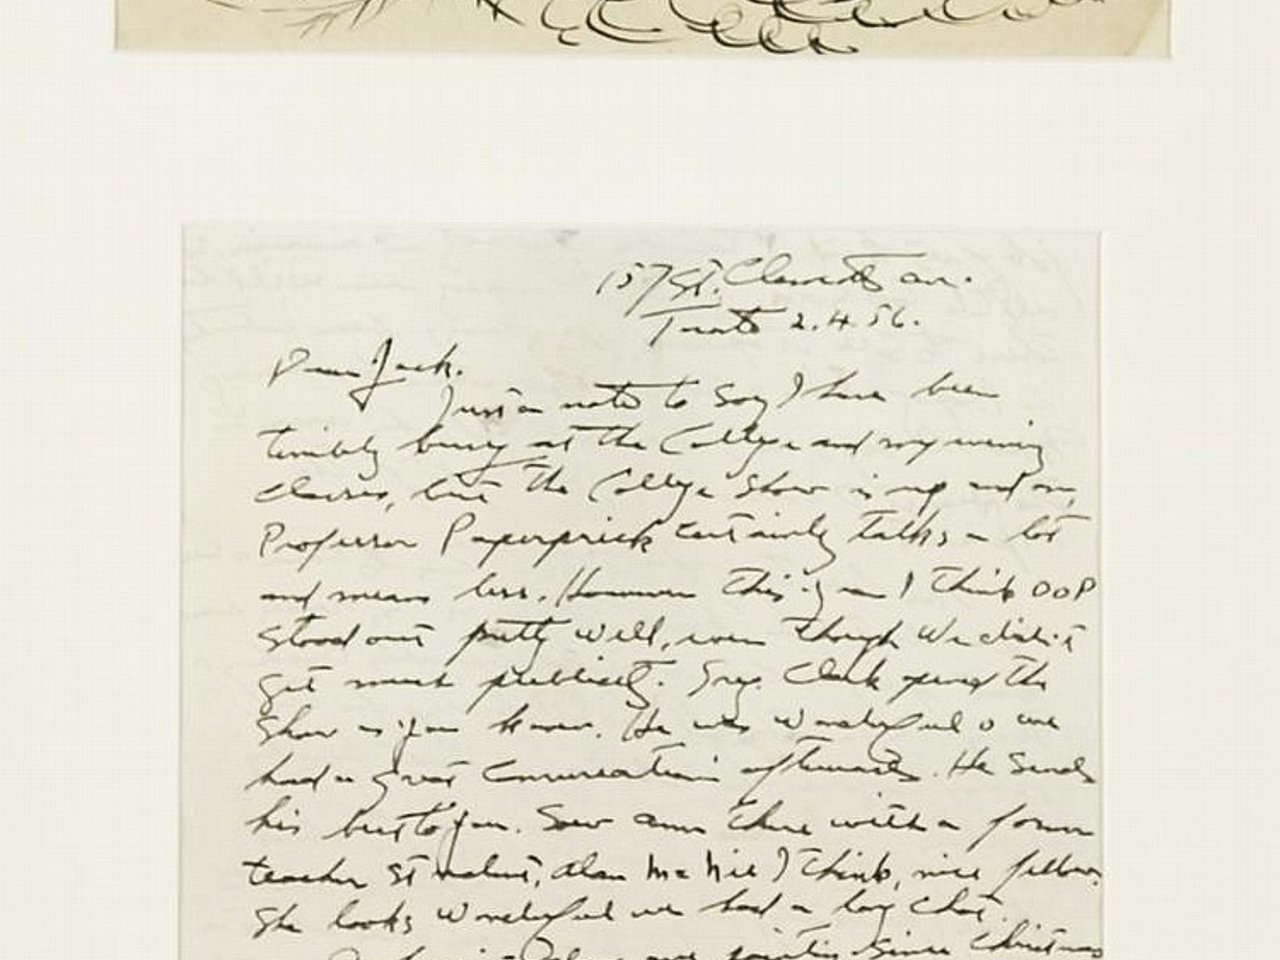 157 St. Clements Ave.
Toronto 2.4.56.
Dear Jack.
Just a note to say I have been
terribly busy at the College and my evening
classes, but the College Show is up and on,
Professor Paperprick certainly talks a lot
and means less. However this year I think DDP
stood out pretty well, even though we didn't
get much publicity. Greg. Clark opened the
Show as you know. He was wonderful & we
had a great conversation afterwards. He sends
his best to you. Saw Ann there with a former
teacher student, Alan McNie I think, nice fellow.
She looks wonderful we had a long chat.
since Christmas